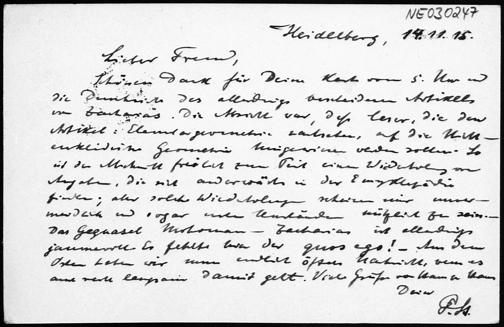 NE030247
Heidelberg, 14.11.15.
Lieber Freund,
Schönen Dank für Deine Karte vom 5. Nov. und
die Durchsicht des allerdings Artikels
von Zacharias. Die Absicht war, daß Leser, die den
Artikel: Elementargeometrie aufsuchen, auf die Nicht-
euklidische Geometrie hingewiesen werden sollen. So
ist der Abschnitt zum Teil eine Wiederholung von
Angaben, die sich anderwärts in der Enzyklopädie
finden; aber solche Wiederholungen scheinen mir unver-
meidlich und sogar unter Umständen nützlich zu sein.
Das Zacharias ist allerdings
jammervoll. Es fehlte hier der quos ego! Aus dem
Osten haben wir nun endlich öfters Nachricht, wenn es
auch recht langsam damit geht. Viele Grüße von Haus zu Haus
Dein
P. St.